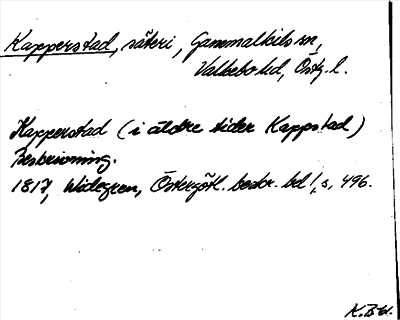 Kapperstad, säteri, Gammalkils sn,
Valkebo hd, Östg. l.
Kapperstad (i äldre tider Kappstad)
Beskrivning.
1817, Widegren, Östergötl. beskr. bd 1, s. 496.